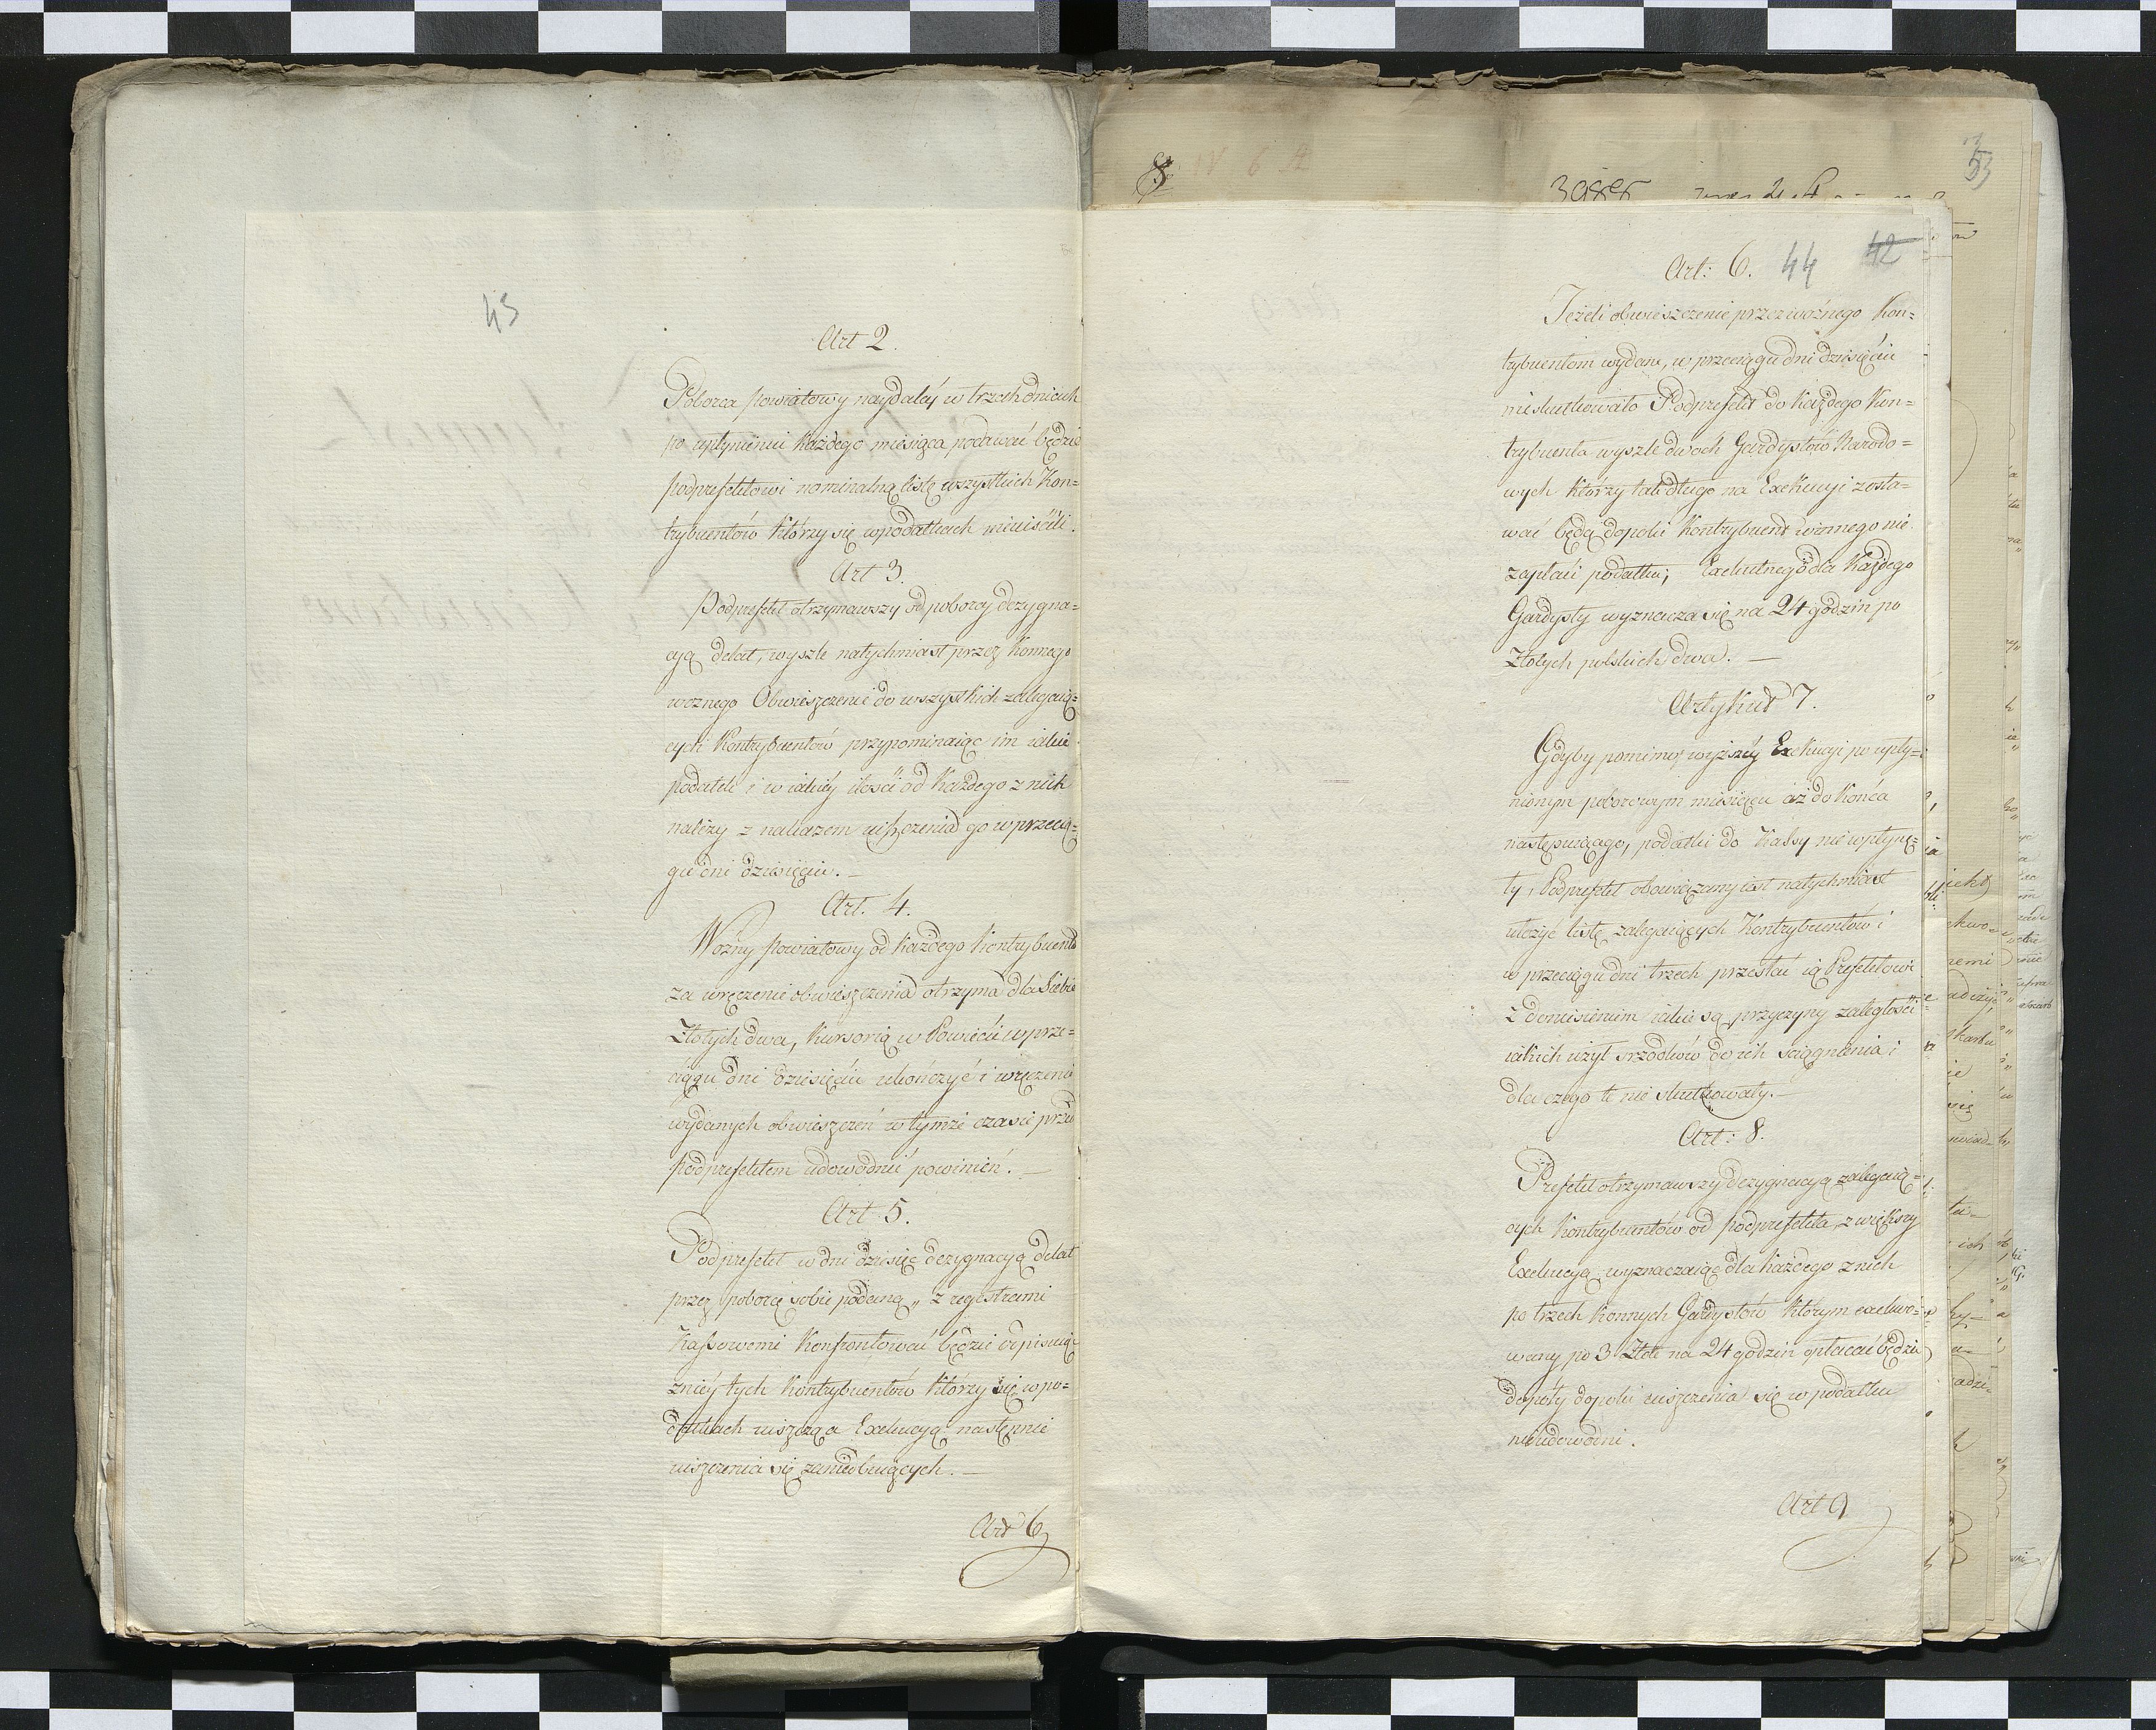 43
Art 2.
Poborca powiatowy naydaléy w trzech dniach
po upłynieniu każdego miesiąca podawać będzie
podprefektowi nominalną listę wszystkich Kon=
trybuentów którzy się w podatkach nieuiścili.
Art 3.
Podprefekt otrzymawszy od poborcy dezygna=
cyą delat, wyszle natychmiast przez Konnego
woznego Obwieszczenie do wszystkich zalegaią=
cych Kontrybuentów przypominaiąc im iaki
podatek i w iakiéy ilości od każdego z nich
należy z nakazem uiszczenia go w przecią=
gu dni dziesięciu. —
Art. 4.
Woźny powiatowy od każdego Kontrybuenta
za wręczenie obwieszczenia otrzyma dla Siebie
Złotych dwa, Kursorią w Powiecie w prze=
ciągu dni dziesięciu ukończyć i wręczenie
wydanych obwieszczeń w tymże czasie przed
podprefektem udowodnić powinień. —
Art 5.
Podprefekt w dni dziesięć dezygnacyą delat
przez poborcę sobie podaną „ z regestrami
Kassowemi Konfrontować będzie odpisuiąc
zniéy tych Kontrybuentów ktorzy się w po=
datkach uiszczą a Exekucyą nastęnie
uiszczenia się zaniedbuiących. —
Art 6
8
33
44 42
Art: 6.
Jeżeli obwieszczenie przez woźnego Kon=
trybuentom wydane, w przeciągu dni dziesięciu
nieskutkowało Podprefekt do każdego Kon=
trybuenta wyszle dwóch Gardystów Narodo=
wych którzy tak długo na Exekucyi zosta=
wać będą dopoki Kontrybuent winnego nie
zapłaci podatku; Exekutnego dla każdego
Gardysty wyznacza się na 24 godzin po
Złotych polskich dwa. —
Artykuł 7.
Gdyby pomimo wyższéy Exekucyi po upły=
nionym poborowym miesiącu aż do końca
następuiącego, podatki do Kassy nie wpłynę=
ły, Podprefekt obowiązany iest natychmiast
ułożyć listę zalegaiących Kontrybuentów i
w przeciągu dni trzech przesłać ią Prefektowi
z doniesieniem iakie są przyczyny zaległości
iakich użył srzodków do ich sciągnienia i
dla czego te nie skutkowały. —
Art: 8.
Prefekt otrzymawszy dezygnacyą zalegaią=
cych Kontrybuentów od podprefekta, zwiększy
Exekucyą wyznaczaiąc dla każdego z nich
po trzech Konnych Gardystów którym exekwo=
wany po 3 Złote na 24 godzin opłacać będzie
dopóty dopoki uiszczenia się w podatku
nieudowodni.
Art 9